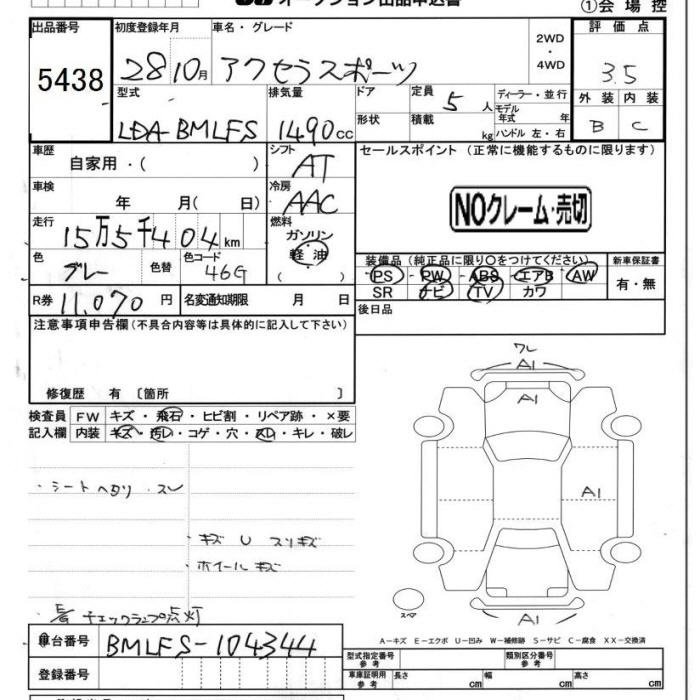 オークション出品申込書
①会場控
出品番号
5438
初度登録年月
28 10月
車名・グレード
アクセラスポーツ
2WD
・
4WD
評価点
3.5
外装 内装
B C
型式
LDA-BMLFS
排気量
1490cc
ドア
形状
定員 5 人
積載 kg
ディーラー・並行
モデル年式 年
ハンドル 左・右
車歴
自家用・( )
シフト
AT
車検
年 月( 日)
冷房
AAC
走行
15万5千404km
燃料
ガソリン
軽油
( )
色
グレー
色替
色コード
46G
R券 11,070 円
名変通知期限 月 日
セールスポイント (正常に機能するものに限ります)
NOクレーム・売切
装備品 (純正品に限り〇をつけてください)
PS PW ABS エアB AW
SR ナビ TV カワ
新車保証書
有・無
後日品
注意事項申告欄(不具合内容等は具体的に記入して下さい)
修復歴 有 〔箇所 〕
検査員記入欄
FW キズ・飛石・ヒビ割・リペア跡・×要
内装 キズ・汚れ・コゲ・穴・スレ・キレ・破レ
・シートヘタリ スレ
・キズ U スリキズ
・ホイールキズ
チェックランプ点灯
ワレ
A1
A1
A1
A1
スペア
A−キズ E−エクボ U−凹み W−補修跡 S−サビ C−腐食 XX−交換済
車台番号
BMLFS-104344
登録番号
型式指定番号
参考
類別区分番号
参考
車庫証明用
参考
長さ cm
幅 cm
高さ cm